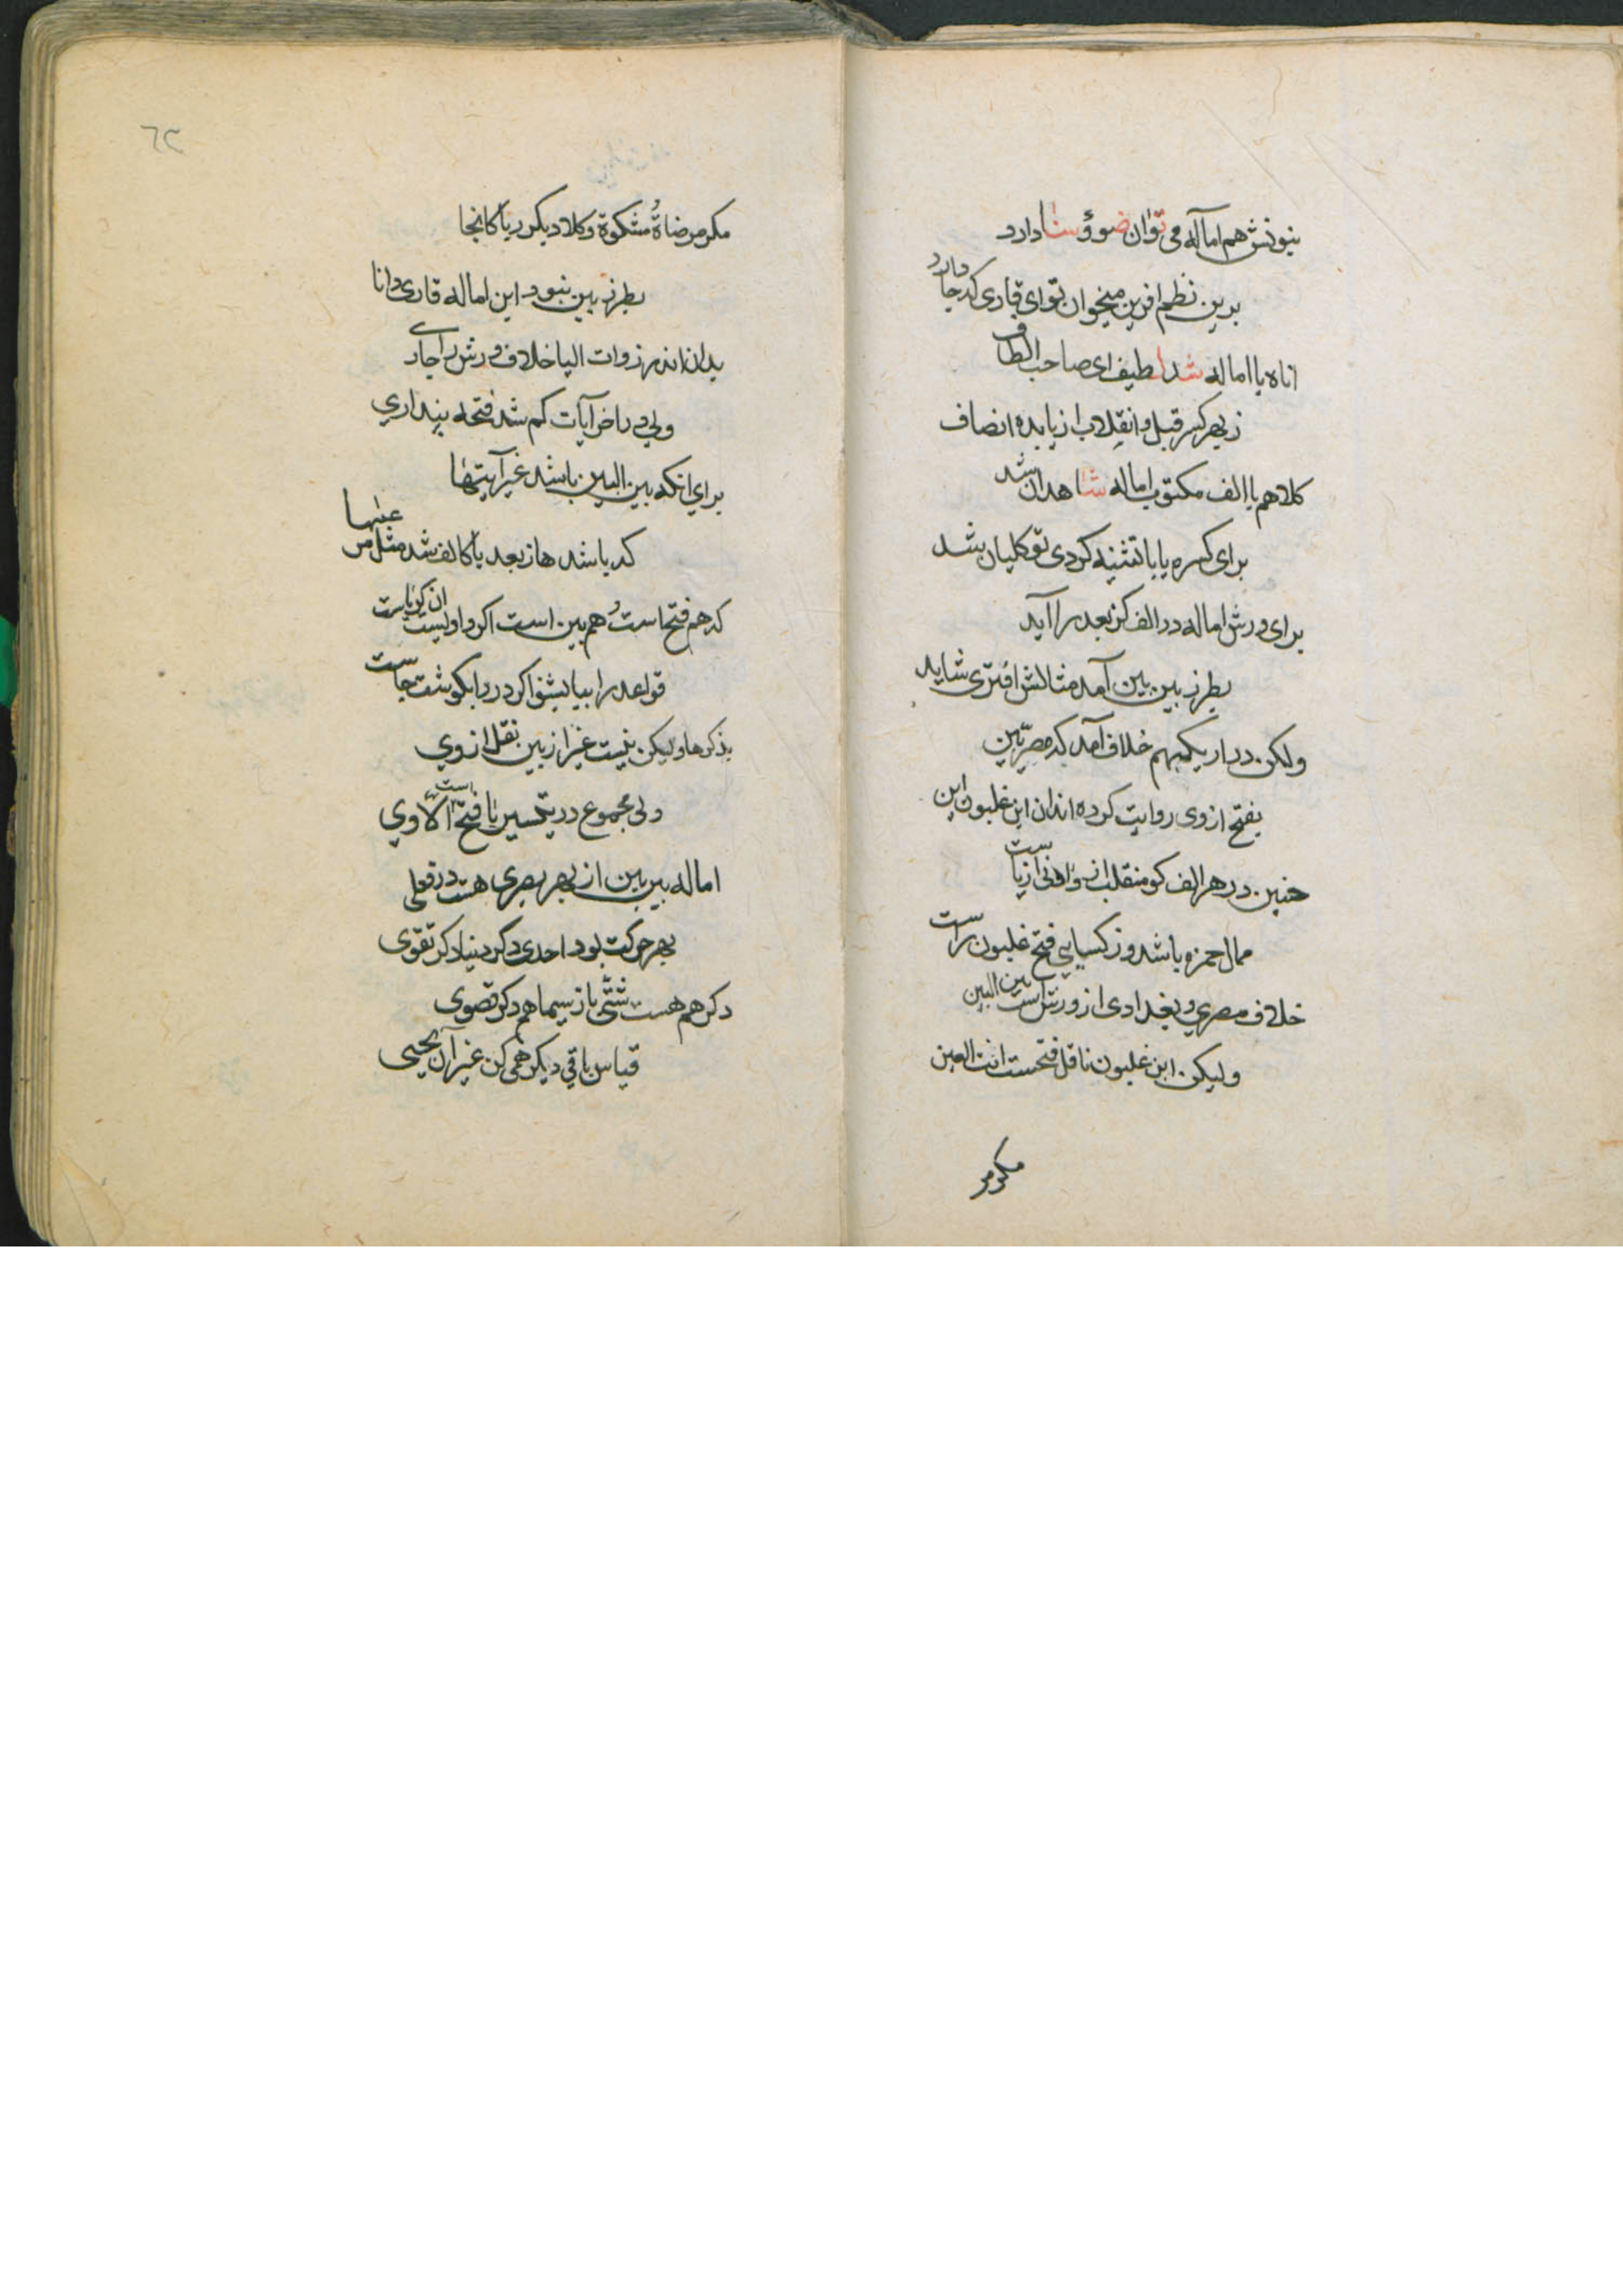 بنونش هم اماله می توان ضوؤ سنا دارد
برین نظم افرین میخوان تو ای قاری که جا دارد
اناه با اماله شد لطیف ای صاحب الطاف
ز بهر کسر قبل و انقلاب از یا بده انصاف
کلاهم با الف مکتوب اماله شاهد ان شد
برای کسره یا با تثنیه کردی تو کلیان شد
برای ورش اماله در الف کز بعد را آید
بطرز بین بین آمد مثالش افتری شاید
ولکن در اریکهم خلاف آمد که مصریین
بفتح از وی روایت کرده اند ان ابن غلبون این
چنین در هر الف کو منقلب از واونی از یاست
ممال حمزه باشد وز کسایی فتح غلبون راست
خلاف مصری و بغدادی از ورش است بین البین
ولیکن ابن غلبون ناقل فتحست انت العین
مکر مر
٦٢
مکر مرضاة مشکوة و کلا دیکر ربا کانجا
بطرز بین نبود این اماله قاری دانا
بدان اندر ذوات الیا خلاف ورش را جاری
ولی در راخر آیات کم شد فتحه پنداری
برای انکه بین البین باشد غیر آیتها
که باشد ها ز بعد یا کالف شد مثل مرعیها
که هم فتح است و هم بین است اکر واویست ان کر یاست
قواعد را بیا بشنو اکر در وا بکوشت جاست
بذکرها ولیکن نیست غیر از بین نقل از وی
ولی مجموع در یتسین با فتح است الا وی
اماله بین بین از بهر بصری هست در فعلی
بهر حرکت بود احدی دکر دنیا دکر تقوی
دکر هم هست شتی باز سیماهم دکر قصوی
قیاس باقی دیکر همی کن غیر آن یحیی